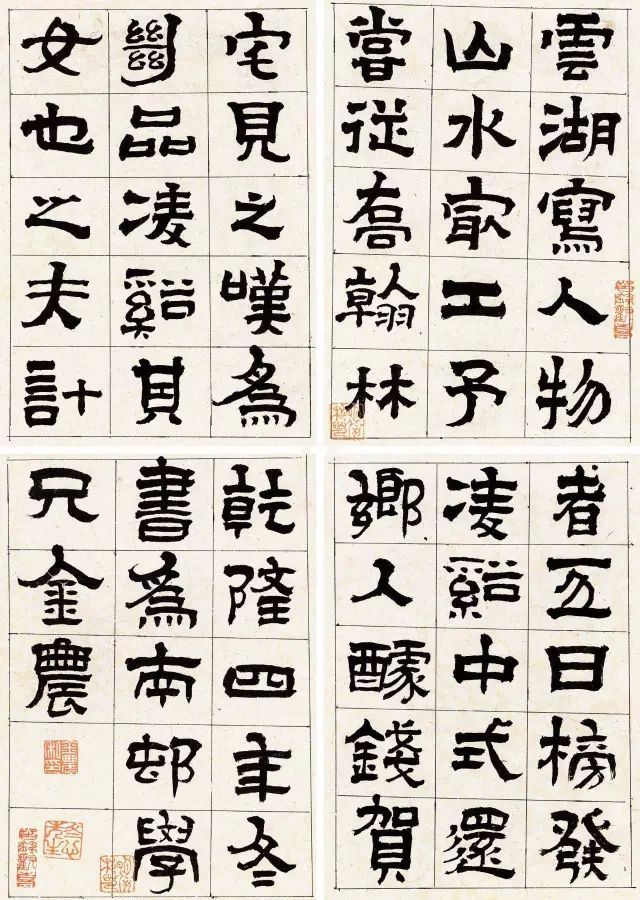 雲湖寫人物
山水㝡工予
嘗從喬翰林
宅見之嘆為
𢇍品凌谿其
女也之夫計
者五日榜發
凌谿中式還
鄉人醵錢賀
乾隆四年冬
書為南邨學
兄金農